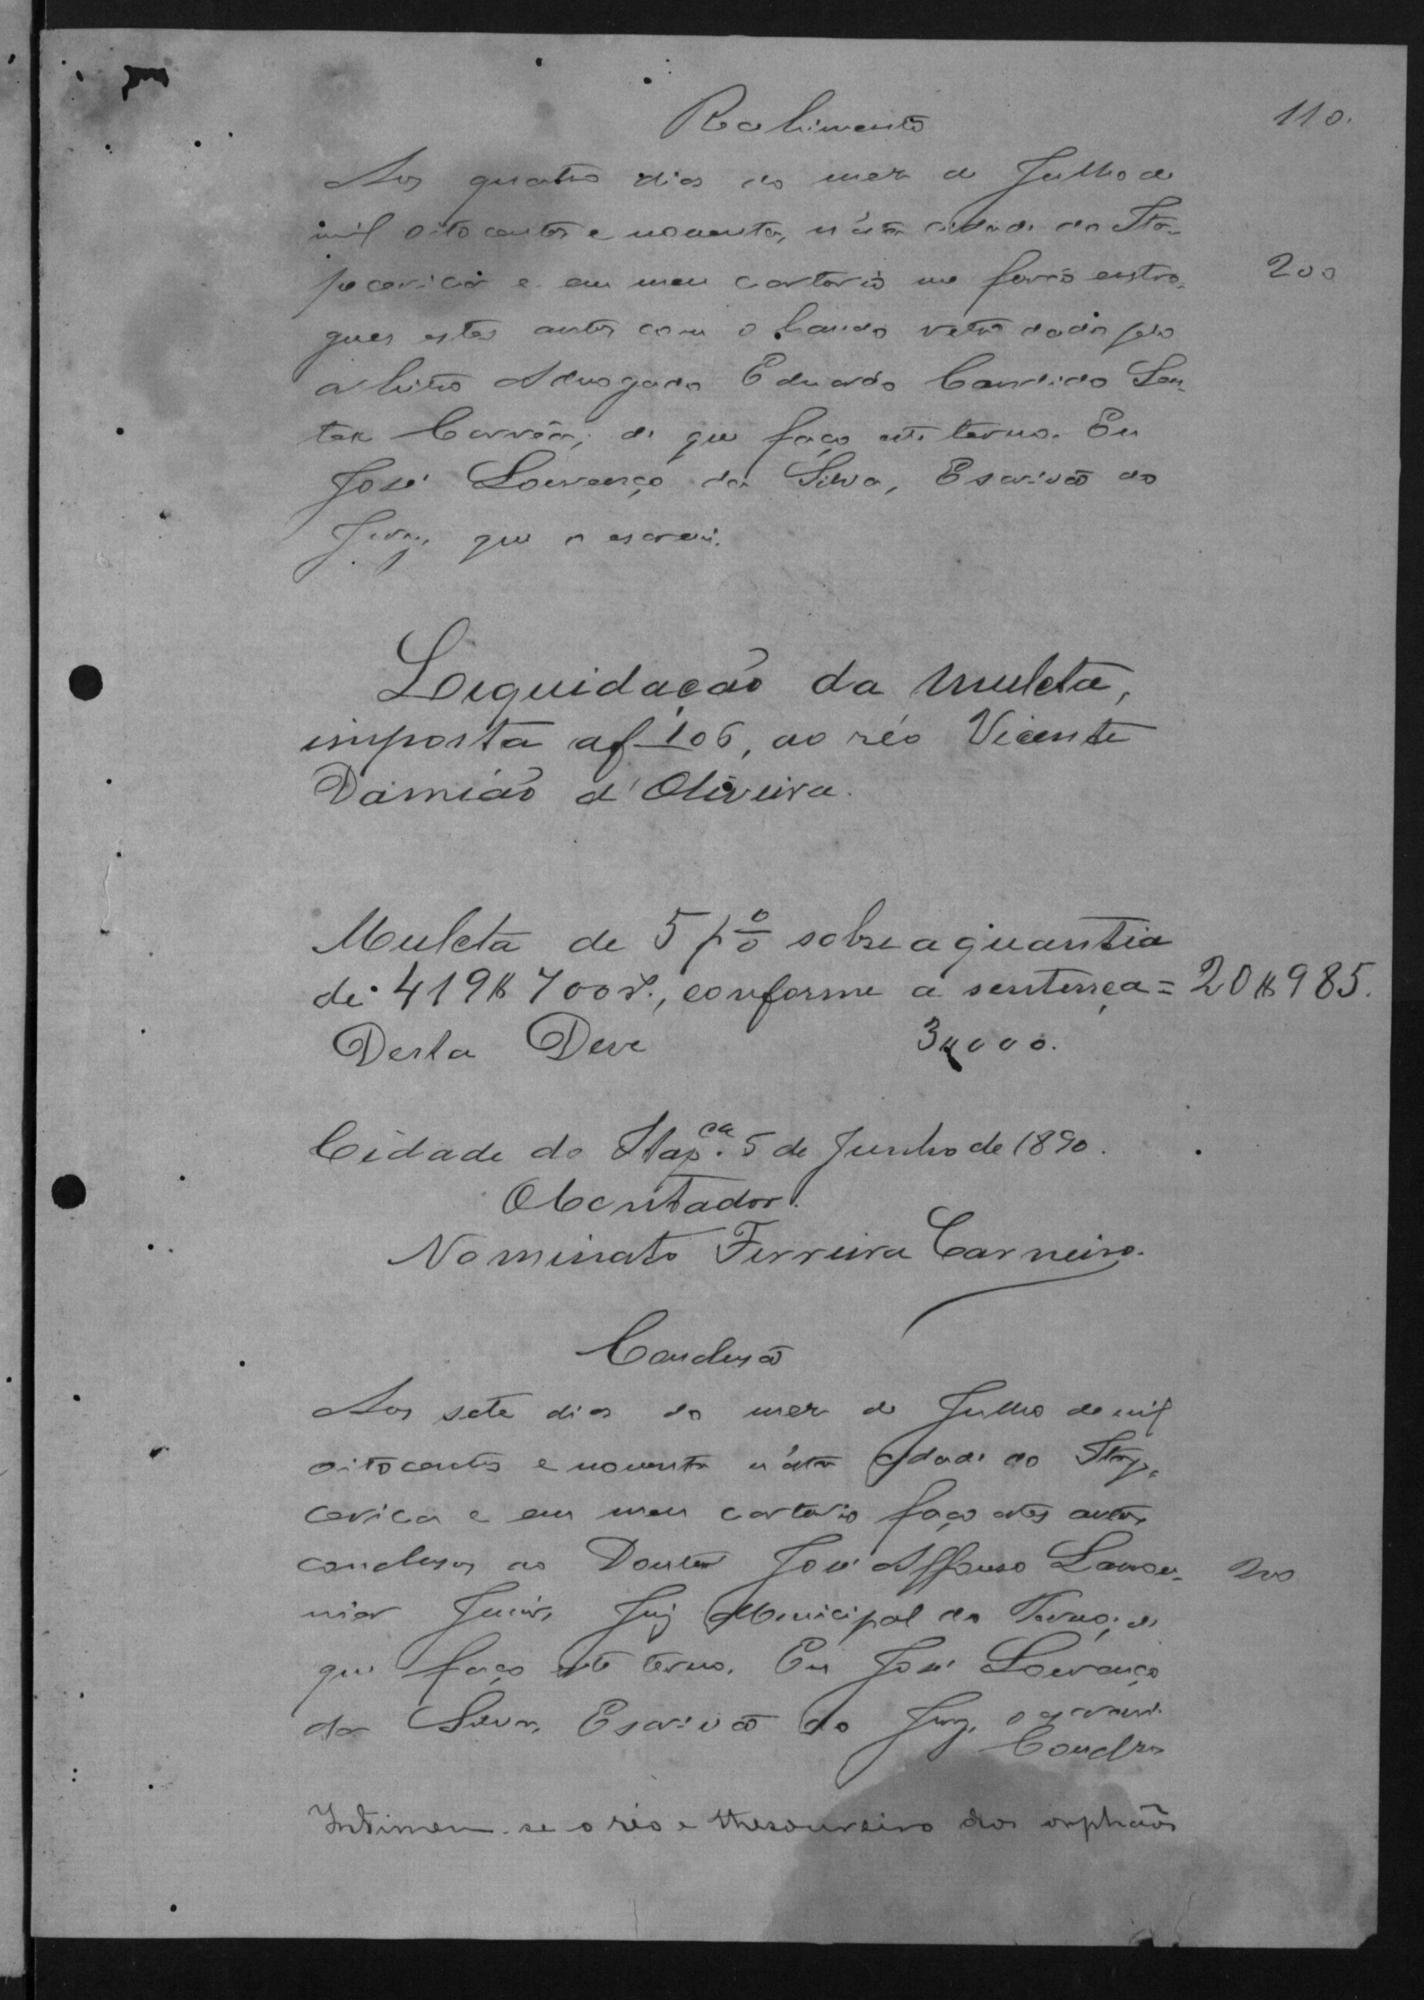 110.
Recebimento
Aos quatro dias do mez de Julho de
mil oitocentos e noventa, n'esta cidade de Ita-
pecerica e em meu cartorio me forão entre-
gues estes autos com o laudo retro dado pelo
arbitro Advogado Eduardo Candido San-
tos Corrêa, de que faço este termo. Eu
José Lourenço da Silva, Escrivão do
Jury, que o escrevi.
200
Liquidação da multa,
imposta a f 106, ao réo Vicente
Damião d'Oliveira.
Multa de 5 p% sobre a quantia
de 419$700 r., conforme a sentença = 20$985.
Desta Deve 3$000.
Cidade de Itapca. 5 de Junho de 1890.
O Contador.
Nominato Ferreira Carneiro.
Conclusão
Aos sete dias do mez de Julho de mil
oitocentos e noventa n'esta cidade de Itape-
cerica e em meu cartorio faço estes autos
conclusos ao Doutor José Affonso Lamou-
nier Junior, Juiz Municipal do Termo; de
que faço este termo. Eu José Lourenço
da Silva, Escrivão do Jury, o escrevi.
200
Conclos
Intimem-se o réo e thesoureiro dos orphãos